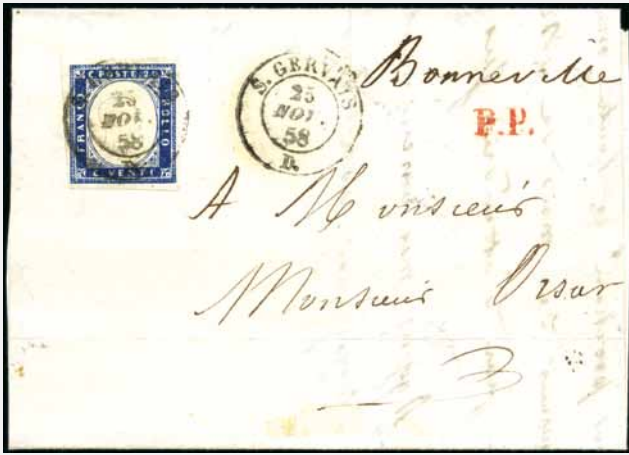 C. POSTE 20
FRANCO
BOLLO
C. VENTI
25
NOV.
58
S. GERVAIS
25
NOV.
58
D.
Bonneville
P.P.
A Monsieur
Monsieur Orsar